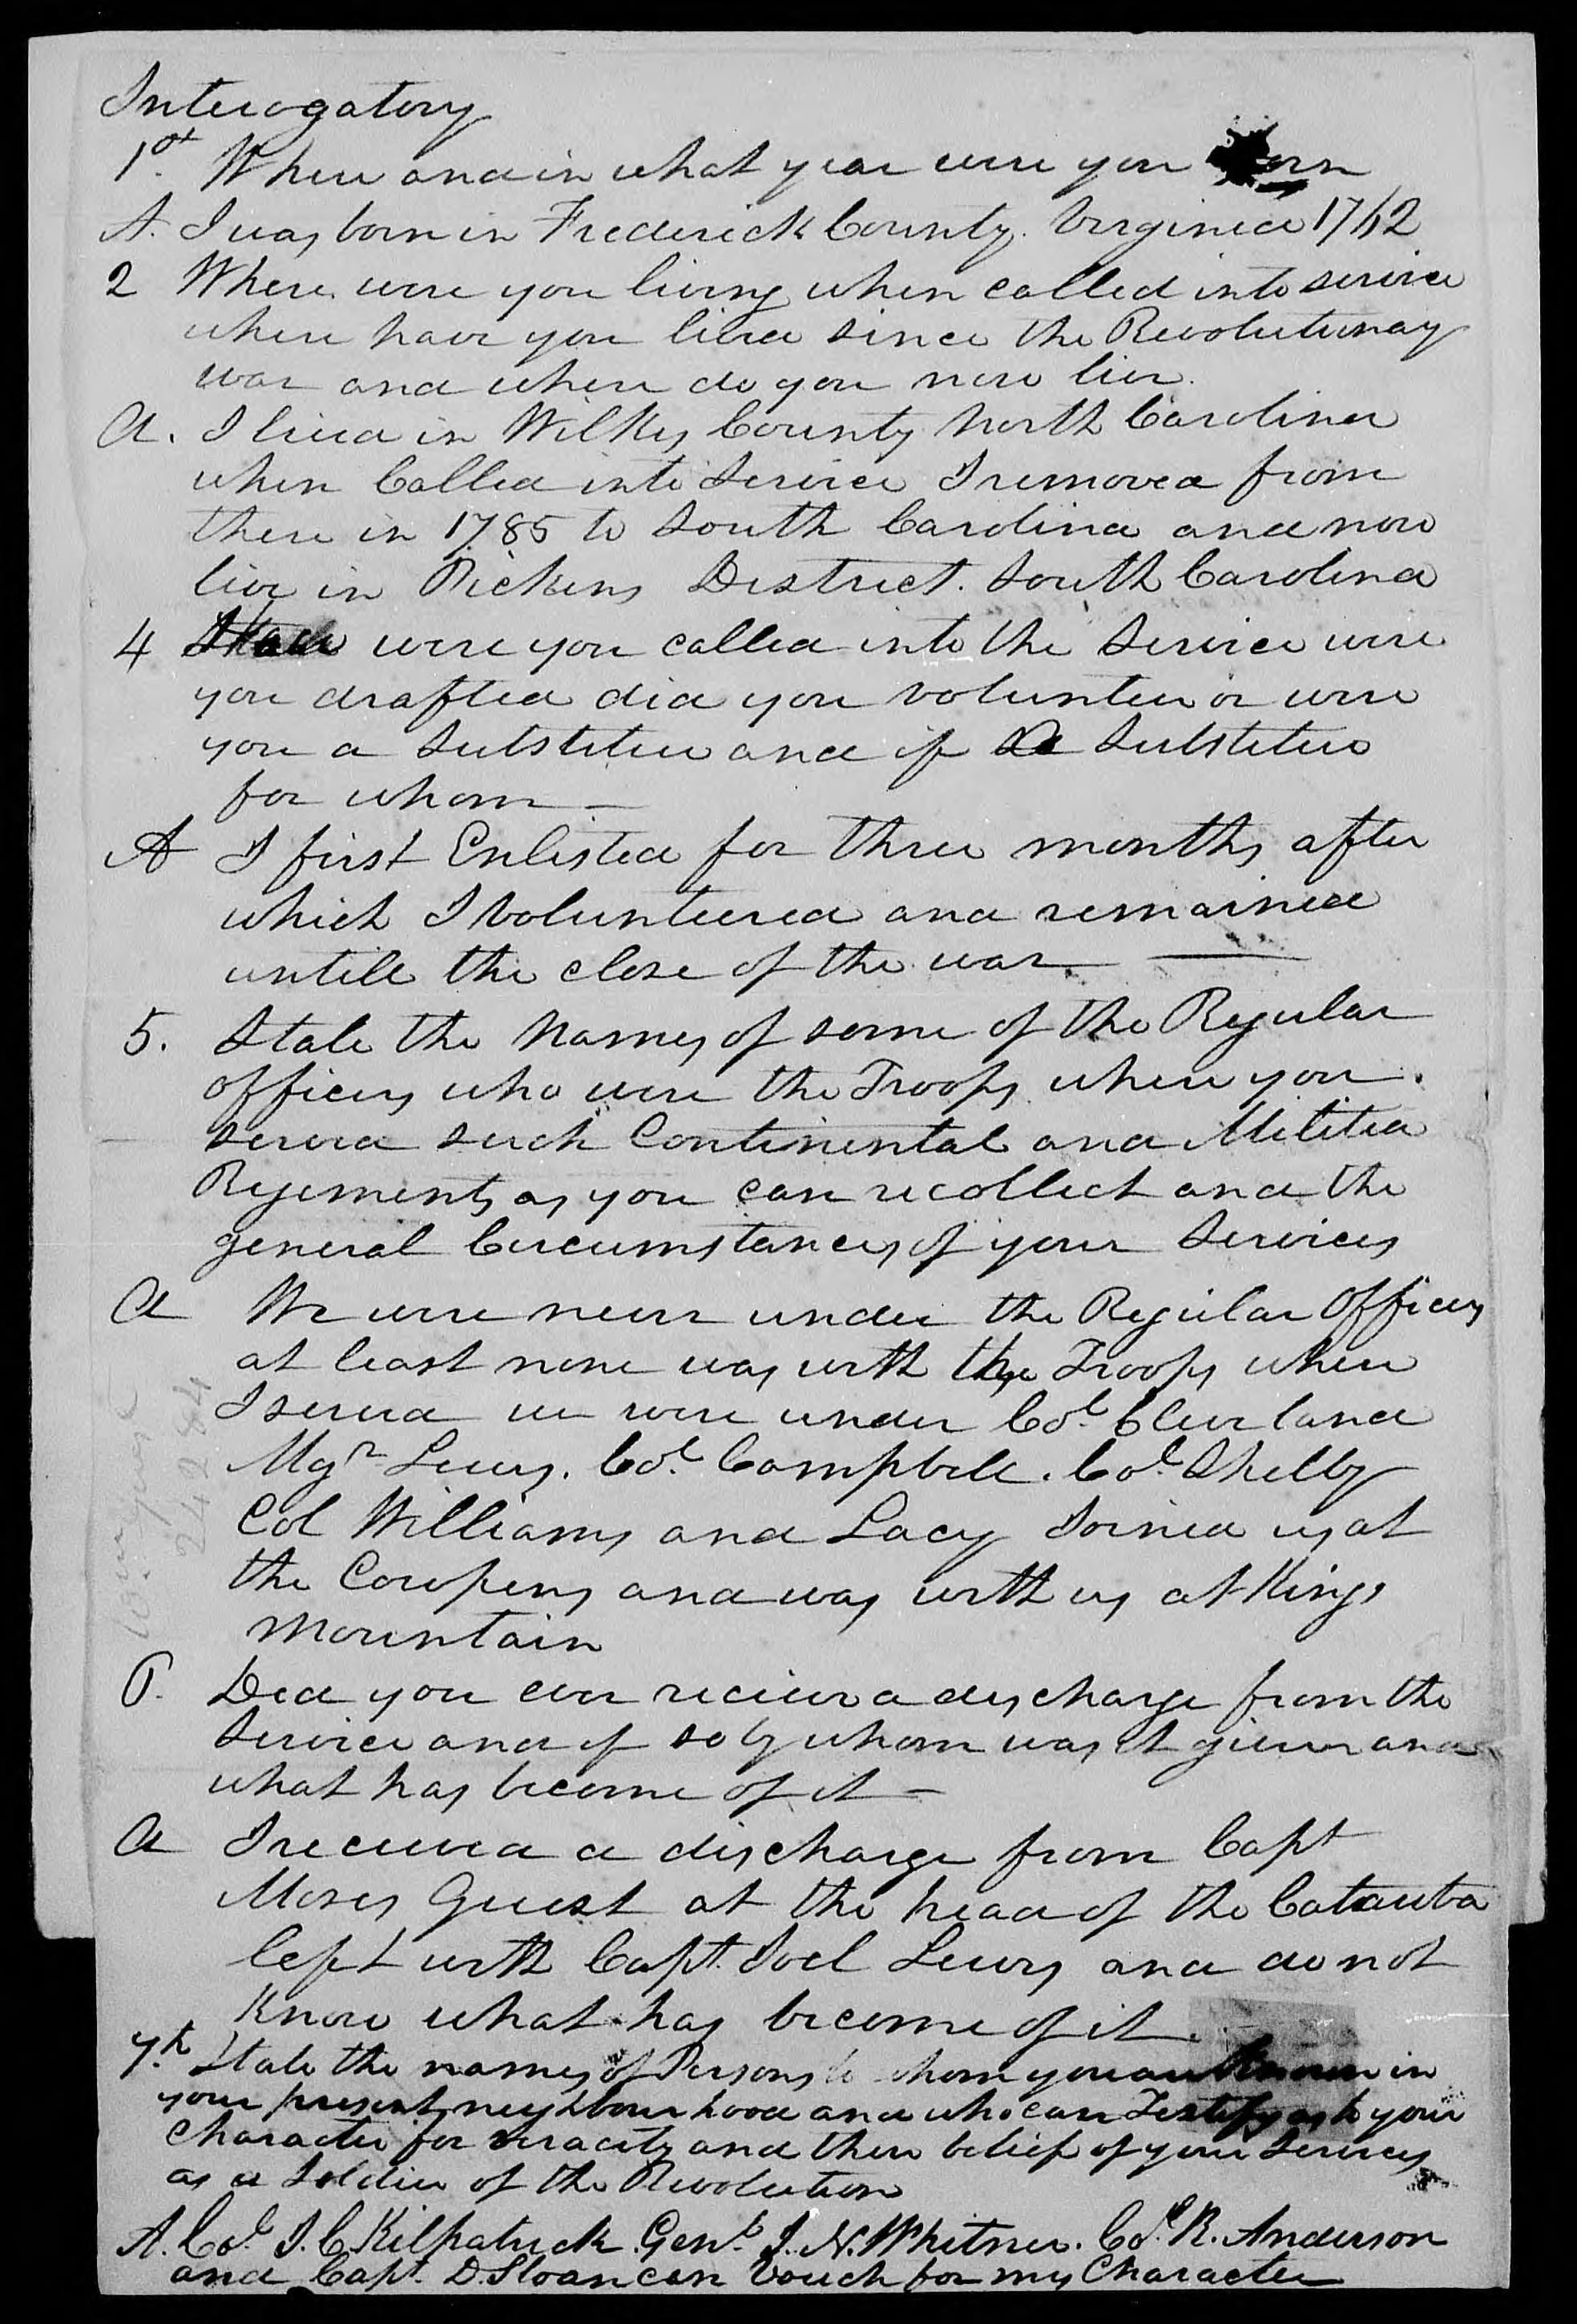 Interogatory
1st. Where and in what year were you born
A. I was born in Frederick County. Virginia 1762
2 Where were you living when called into service
where have you lived since the Revolutionay
war and where do you now live.
A. I lived in Wilkes County North Carolina
when Called into Service I removed from
there in 1785 to South Carolina and now
live in Pickens District. South Carolina
4 were you called into the Service were
you drafted did you volunteer or were
you a Substitue and if a Substitue
for whom —
A I first Enlisted for three months after
which I volunteered and remained
untill the close of the war. —
5. State the Names of some of the Regular
officers who were the Troops where you
served such Continental and Militia
Regements as you can recollect and the
general Circumstances of your Services
A We were never under the Regular Officers
at least none was with the Troops where
I served we were under Col. Cleveland
Mgr Lewis. Col. Campbell. Col. Shelby
Col Williams and Lacy Joined us at
the Cowpens and was with us at Kings
Mountain
6. Did you ever recieve a discharge from the
Service and if so by whom was it given and
what has become of it —
A I received a discharge from Capt
Moses Guest at the head of the Catauba
left with Capt. Joel Lewis and do not
know what has become of it.
7th. State the names of Persons to whom you are known in
your present neighbourhood and who can Testify as to your
Character for veracity and their belief of your Services
as a Soldier of the Revolution
A. Col. J. C. Kilpatrick. Genl. J. N. Whitner. Col. R. Anderson
and Capt. D. Sloan can vouch for my Character
24284